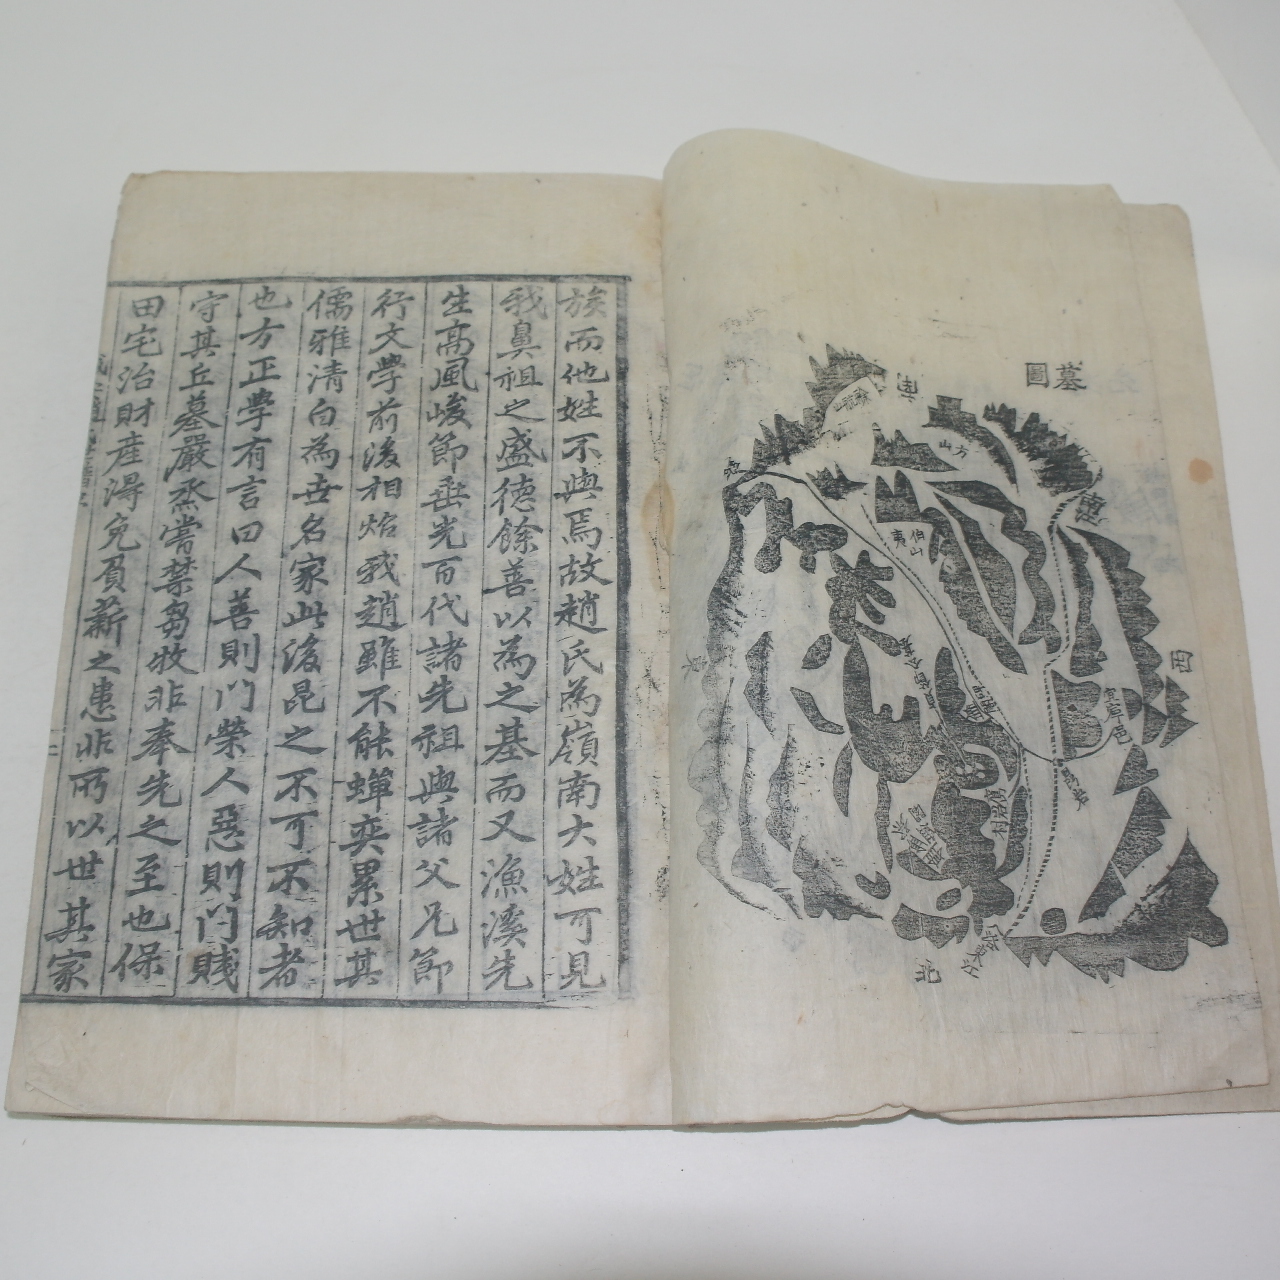 墓圖
南
方山
伯夷山
西
東
北
族而他姓不與焉故趙氏為嶺南大姓可見
我鼻祖之盛德餘善以為之基而又漁溪先
生高風峻節垂光百代諸先祖與諸父兄節
行文學前後相焰我趙雖不能蟬奕累世其
儒雅清白為世名家此後昆之不可不知者
也方正學有言曰人善則門榮人惡則門賤
守其丘墓嚴烝嘗禁芻牧非奉先之至也保
田宅治財產得免負薪之患非所以世其家